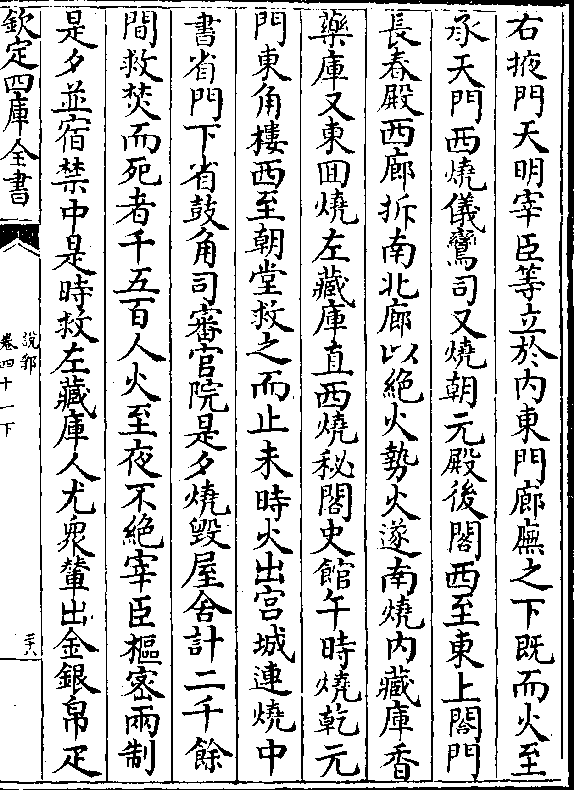 右掖門天明宰臣等立於内東門廊廡之下既而火至
承天門西燒儀鸞司又燒朝元殿後閣西至東上閤門
長春殿西廊拆南北廊以絶火勢火遂南燒内藏庫香
藥庫又東回燒左藏庫直西燒秘閣史館午時燒乾元
門東角樓西至朝堂救之而止未時火出宫城連燒中
書省門下省鼓角司審官院是夕燒毁屋舍計二千餘
間救焚而死者千五百人火至夜不絶宰臣樞密兩制
是夕並宿禁中是時救左藏庫人尤衆輦出金銀帛疋
欽定四庫全書
說郛
卷四十一下
三十八